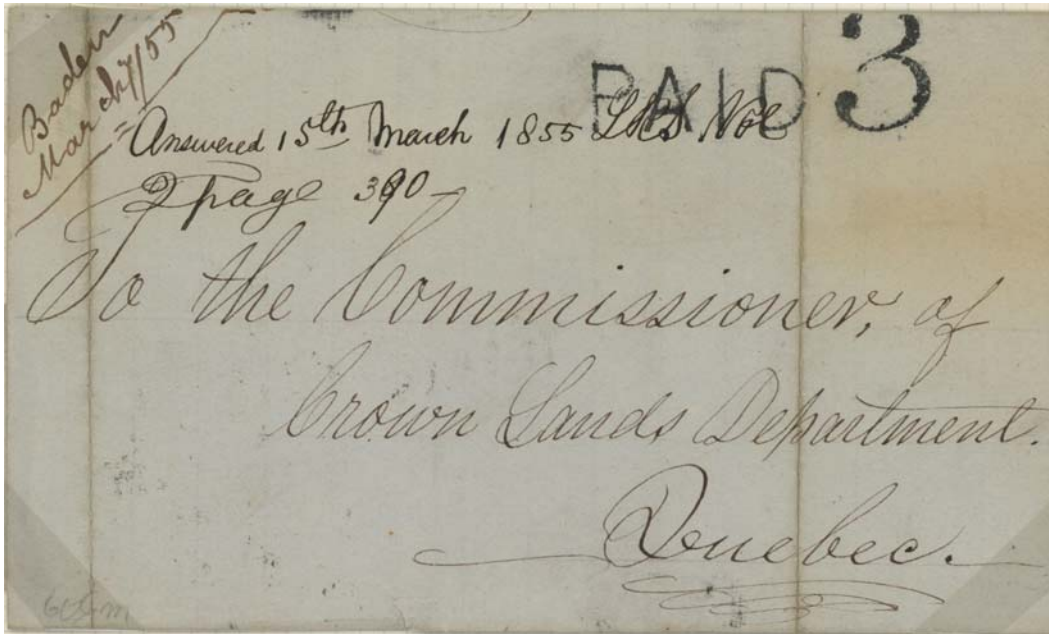 Baden
March 7/55
PAID 3
Answered 15th March 1855 Vol
2 page 390
To the Commissioner, of
Crown Lands Department.
Quebec.